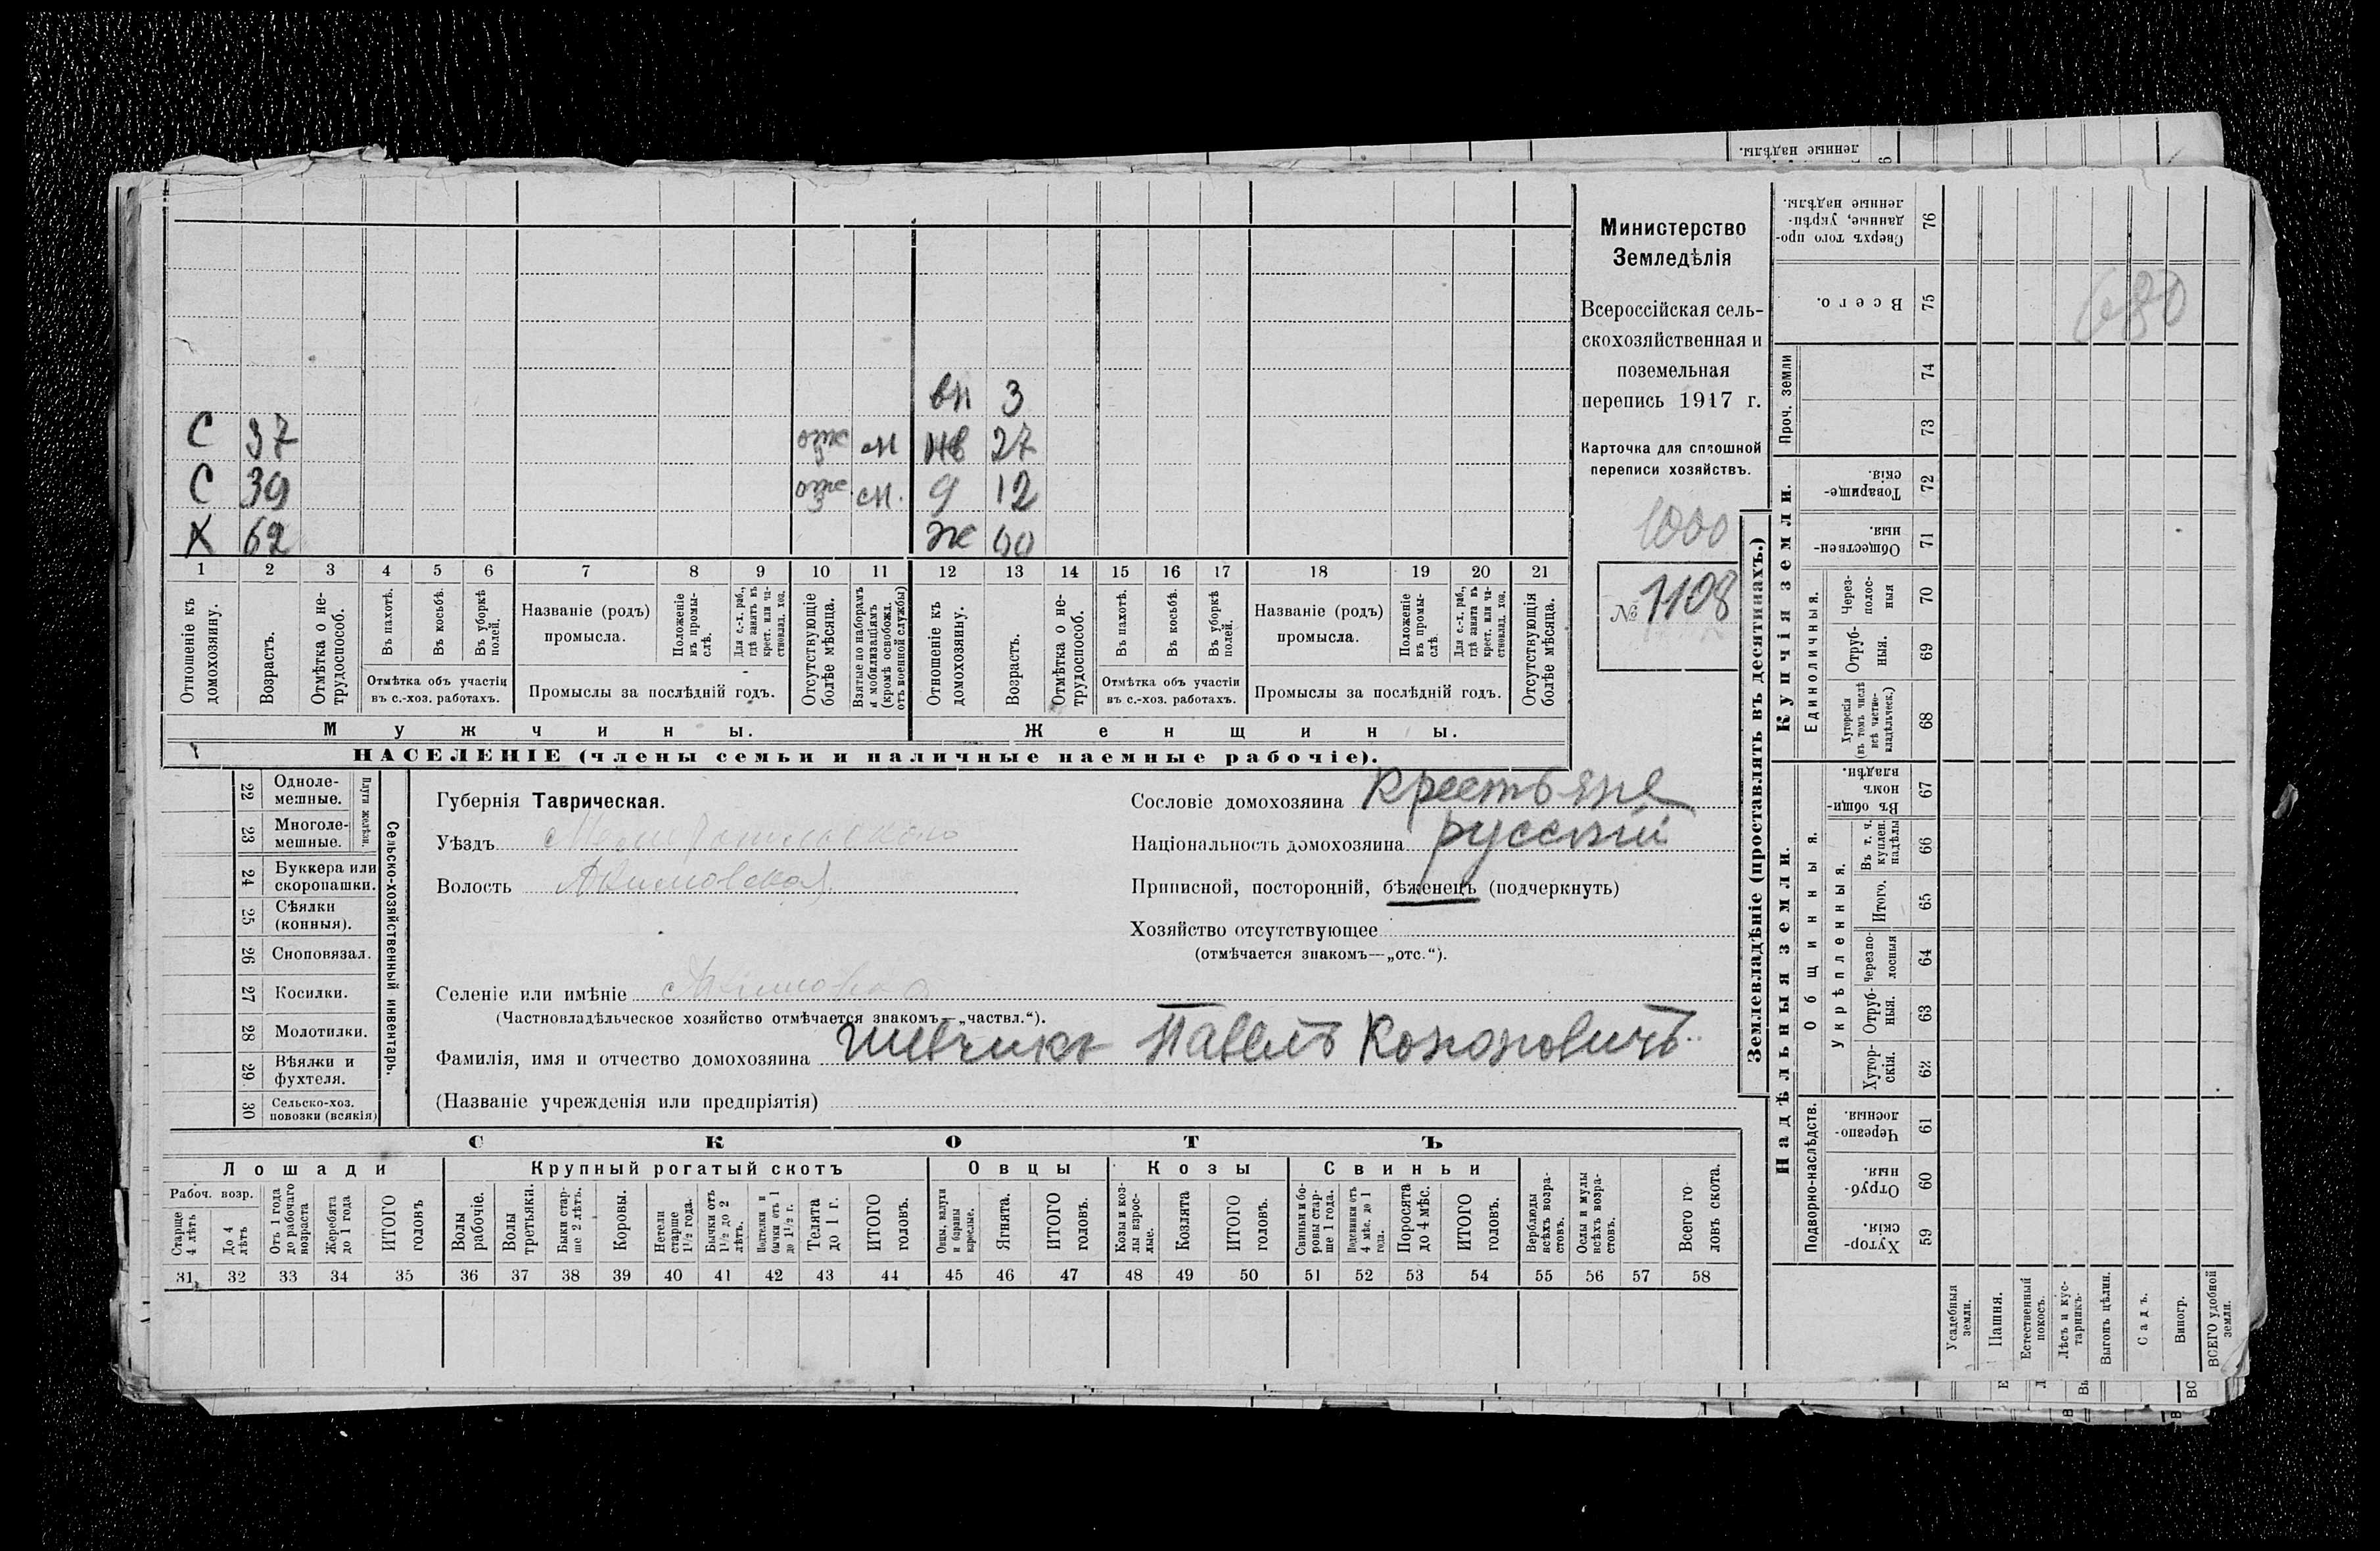 вп 3
С 37 отс сл нв 27
С 39 отс сл. д 12
Х 62 ж 60
1 2 3 4 5 6 7 8 9 10 11 12 13 14 15 16 17 18 19 20 21
Отношеніе къ домохозяину.
Возрастъ.
Отмѣтка о не-трудоспособ.
Въ пахотѣ.
Въ косьбѣ.
Въ уборкѣ полей.
Отмѣтка объ участіи
въ с.-хоз. работахъ.
Названіе (родъ)
промысла.
Положеніе въ промы-слѣ.
Для с.-х. раб., гдѣ занятъ въ крест. или ча-стновлад. хоз.
Промыслы за послѣдній годъ.
Отсутствующіе болѣе мѣсяца.
Взятые по наборамъ и мобилизаціямъ (кромѣ освобожд. отъ военной службы)
Отношеніе къ домохозяину.
Возрастъ.
Отмѣтка о не-трудоспособ.
Въ пахотѣ.
Въ косьбѣ.
Въ уборкѣ полей.
Отмѣтка объ участіи
въ с.-хоз. работахъ.
Названіе (родъ)
промысла.
Положеніе въ промы-слѣ.
Для с.-х. раб., гдѣ занята въ крест. или ча-стновлад. хоз.
Промыслы за послѣдній годъ.
Отсутствующія болѣе мѣсяца.
Мужчины.
Женщины.
НАСЕЛЕНІЕ (члены семьи и наличные наемные рабочіе).
Министерство
Земледѣлія
Всероссійская сель-
скохозяйственная и
поземельная
перепись 1917 г.
Карточка для сплошной
переписи хозяйствъ.
1000
№ 1108
22 Одноле-мешные.
23 Многоле-мешные.
Плуги желѣзн.
24 Буккера или скоропашки.
25 Сѣялки (конныя).
26 Сноповязал.
27 Косилки.
28 Молотилки.
29 Вѣялки и фухтеля.
30 Сельско-хоз. повозки (всякія)
Сельско-хозяйственный инвентарь.
Губернія Таврическая.
Уѣздъ
Волость Акимовская
Селеніе или имѣніе Акимовка
(Частновладѣльческое хозяйство отмѣчается знакомъ—„частвл.“).
Фамилія, имя и отчество домохозяина Шевчикъ Павелъ Кононовичъ
(Названіе учрежденія или предпріятія)
Сословіе домохозяина Крестьяне
Національность домохозяина русскій
Приписной, посторонній, бѣженецъ (подчеркнуть)
Хозяйство отсутствующее
(отмѣчается знакомъ—„отс.“).
СКОТЪ
Лошади
Крупный рогатый скотъ
Овцы
Козы
Свиньи
Рабоч. возр.
Старше 4 лѣтъ
До 4 лѣтъ
Отъ 1 года до рабочаго возраста
Жеребята до 1 года
ИТОГО головъ
Волы рабочіе.
Волы третьяки.
Быки стар-ше 2 лѣтъ.
Коровы.
Нетели старше 1½ года.
Бычки отъ 1½ до 2 лѣтъ.
Подтелки и бычки отъ 1 до 1½ г.
Телята до 1 г.
ИТОГО головъ.
Овцы, валухи и бараны взрослые.
Ягнята.
ИТОГО головъ.
Козы и коз-лы взрос-лые.
Козлята
ИТОГО головъ.
Свиньи и бо-ровы стар-ше 1 года.
Подсвинки отъ 4 мѣс. до 1 года.
Поросята до 4 мѣс.
ИТОГО головъ.
Верблюды всѣхъ возра-стовъ.
Ослы и мулы всѣхъ возра-стовъ.
Всего го-ловъ скота.
31 32 33 34 35 36 37 38 39 40 41 42 43 44 45 46 47 48 49 50 51 52 53 54 55 56 57 58
Землевладѣніе (проставлять въ десятинахъ.)
Надѣльныя земли.
Купчія земли.
Проч. земли
Подворно-наслѣдств.
Общинныя.
Укрѣпленныя.
Единоличныя.
Хутор-скія. 59
Отруб-ныя. 60
Черезпо-лосныя. 61
Хутор-скія. 62
Отруб-ныя. 63
Черезпо-лосныя 64
Итого. 65
Въ т. ч. куплен. надѣлы 66
Въ общи-номъ владѣн. 67
Хуторскія (въ томъ числѣ всѣ частно-владѣльческ.) 68
Отруб-ныя. 69
Через-полос-ныя 70
Обществен-ныя. 71
Товарище-скія. 72
73
74
Всего. 75
Сверхъ того про-данные, укрѣп-ленные надѣлы. 76
680
Усадебныя земли.
Пашня.
Естественный покосъ.
Лѣсъ и кус-тарникъ.
Выгонъ цѣлин.
Садъ.
Виногр.
ВСЕГО удобной земли.
ленные надѣлы.